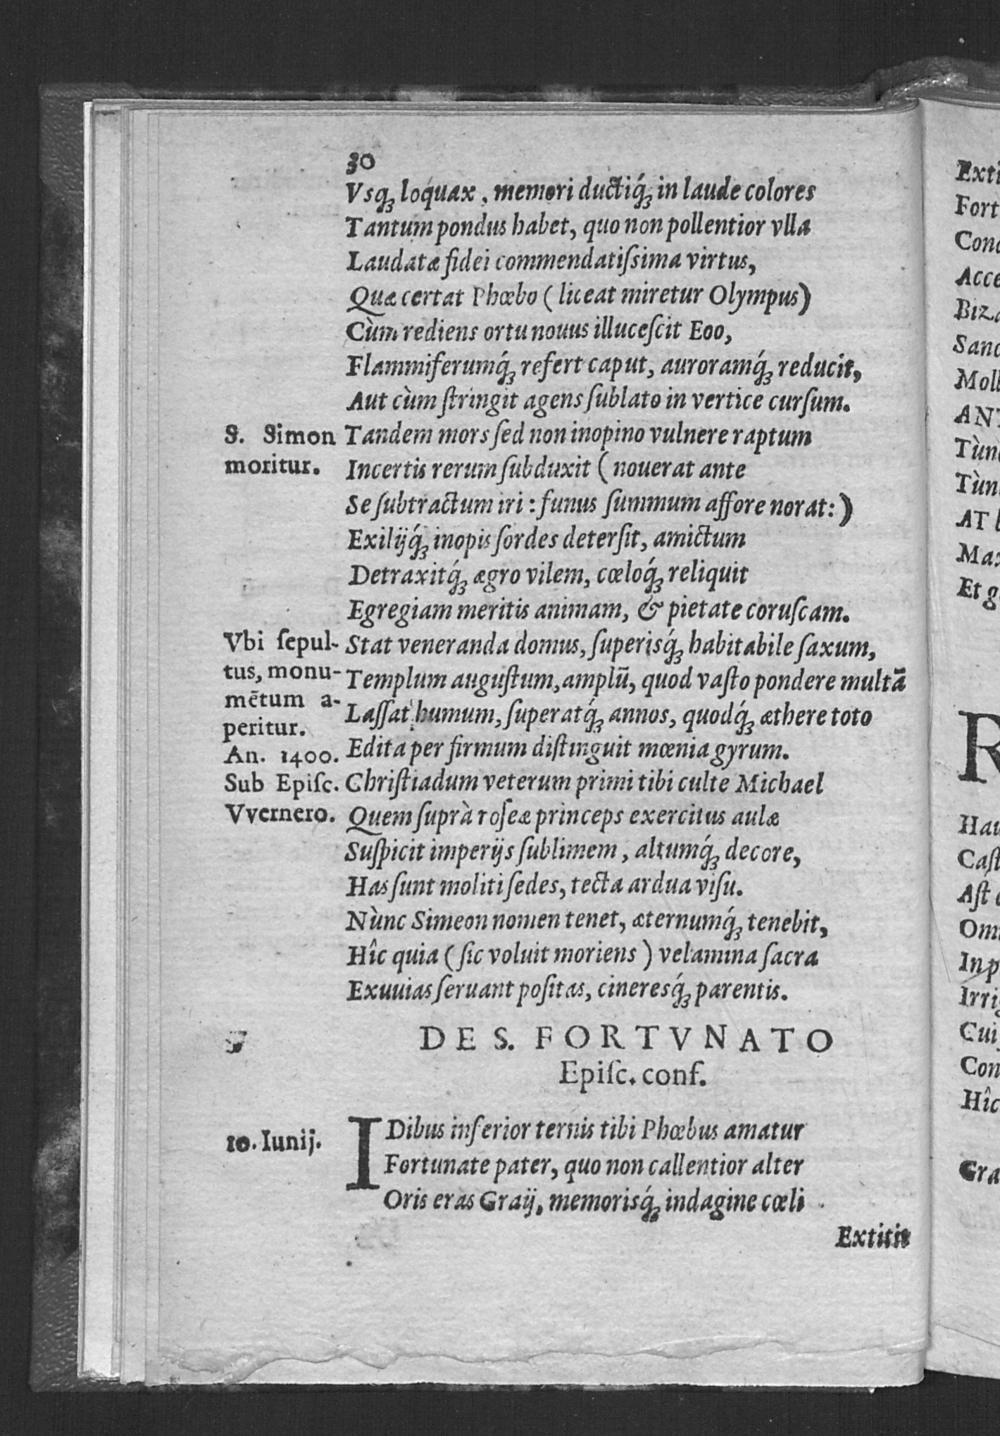 30
Vsq́ꝫ loquax, memori ductiq́ꝫ in laude colores
Tantum pondus habet, quo non pollentior vlla
Laudatæ fidei commendatiſsima virtus,
Quæ certat Phœbo (liceat miretur Olympus)
Cùm rediens ortu nouus illuceſcit Eoo,
Flammiferumq́ꝫ refert caput, auroramq́ꝫ reducit,
Aut cùm ſtringit agens ſublato in vertice curſum.
S. Simon moritur.
Tandem mors ſed non inopino vulnere raptum
Incertis rerum ſubduxit (nouerat ante
Se ſubtractum iri: funus ſummum affore norat:)
Exilijq́ꝫ inopis ſordes deterſit, amictum
Detraxitq́ꝫ ægro vilem, cœloq́ꝫ reliquit
Egregiam meritis animam, & pietate coruſcam.
Vbi ſepul-
tus, monu-
mẽtum a-
peritur.
An. 1400.
Sub Epiſc.
Vvernero.
Stat veneranda domus, ſuperisq́ꝫ habitabile ſaxum,
Templum auguſtum, amplũ, quod vaſto pondere multã
Laſſat humum, ſuperatq́ꝫ annos, quodq́ꝫ æthere toto
Edita per firmum diſtinguit mœnia gyrum.
Chriſtiadum veterum primi tibi culte Michael
Quem ſuprà roſeæ princeps exercitus aulæ
Suſpicit imperijs ſublimem, altumq́ꝫ decore,
Has ſunt moliti ſedes, tecta ardua viſu.
Nùnc Simeon nomen tenet, æternumq́ꝫ tenebit,
Hîc quia (ſic voluit moriens) velamina ſacra
Exuuias ſeruant poſitas, cineresq́ꝫ parentis.
DE S. FORTVNATO
Epiſc. conf.
10. Iunij.
IDibus inferior ternis tibi Phœbus amatur
Fortunate pater, quo non callentior alter
Oris eras Graij, memorisq́ꝫ indagine cœli
Extitit
Exti
Fort
Acce
Biz
Sanc
Moll
ANT
Tùn
Tùn
AT
Max
Et g
R
Hau
Caſt
Aſt
Om
In p
Irri
Cui
Con
Hîc
Gra